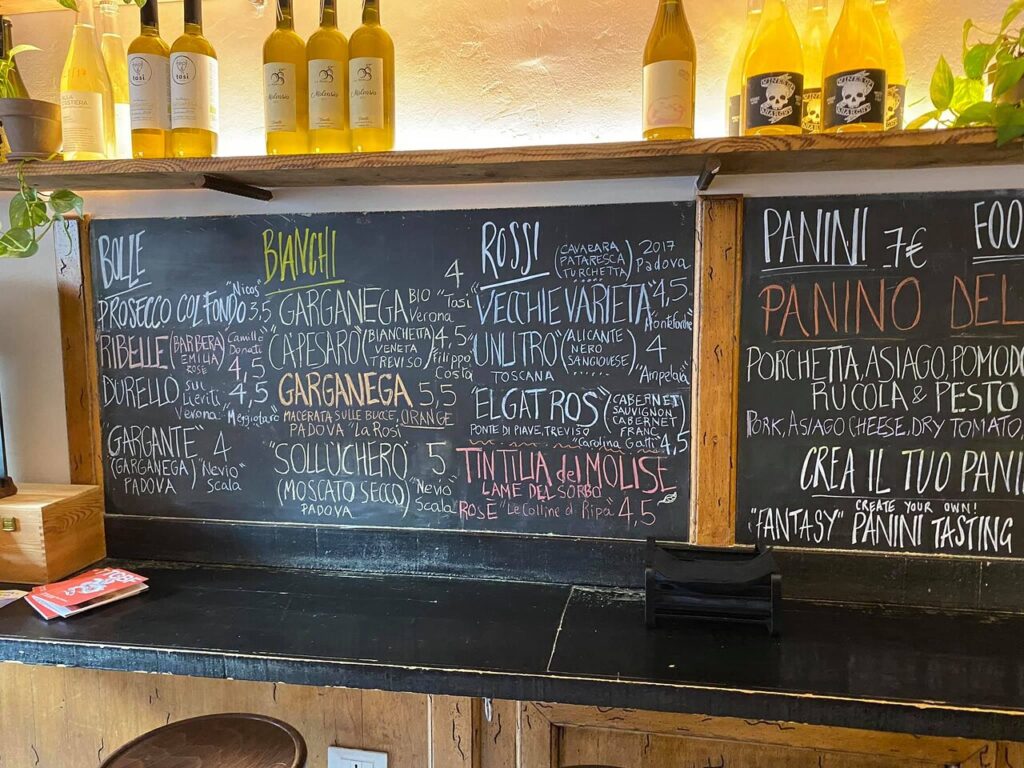 BOLLE
PROSECCO COL FONDO "Nicos" 3,5
"RIBELLE" (BARBERA EMILIA ROSÈ) Camillo Donati 4,5
DURELLO sui Lieviti Verona 4,5
"GARGANTE" 4
(GARGANEGA) "Nevio"
PADOVA Scala
BIANCHI
4
GARGANEGA BIO "Tosi"
Verona
"CA'PESARO" (BIANCHETTA VENETA TREVISO) 4,5 Filippo Costa
GARGANEGA 5,5
MACERATA SULLE BUCCE, ORANGE
PADOVA "La Rosi
"SOLLUCHERO 5
(MOSCATO SECCO) "Nevio"
PADOVA Scala
ROSSI
(CAVARARA PATARESCA TURCHETTA) 2017 Padova
"VECCHIE VARIETA" 4,5
"UNLITRO" (ALICANTE NERO SANGIOVESE) 4
TOSCANA "Ampelaia"
"ELGATROS" (CABERNET SAUVIGNON CABERNET FRANC)
PONTE DI PIAVE, TREVISO
"Carolina Gatti" 4,5
TINTILIA del MOLISE
LAME DEL SORBO
ROSÈ "Le Colline di Ripa" 4,5
PANINI 7€
FOO
PANINO DEL
PORCHETTA, ASIAGO, POMODO
RUCOLA & PESTO
PORK, ASIAGO CHEESE, DRY TOMATO,
CREA IL TUO PANI
CREATE YOUR OWN!
"FANTASY" PANINI TASTING
tosi
tosi
Malensia
Malensio